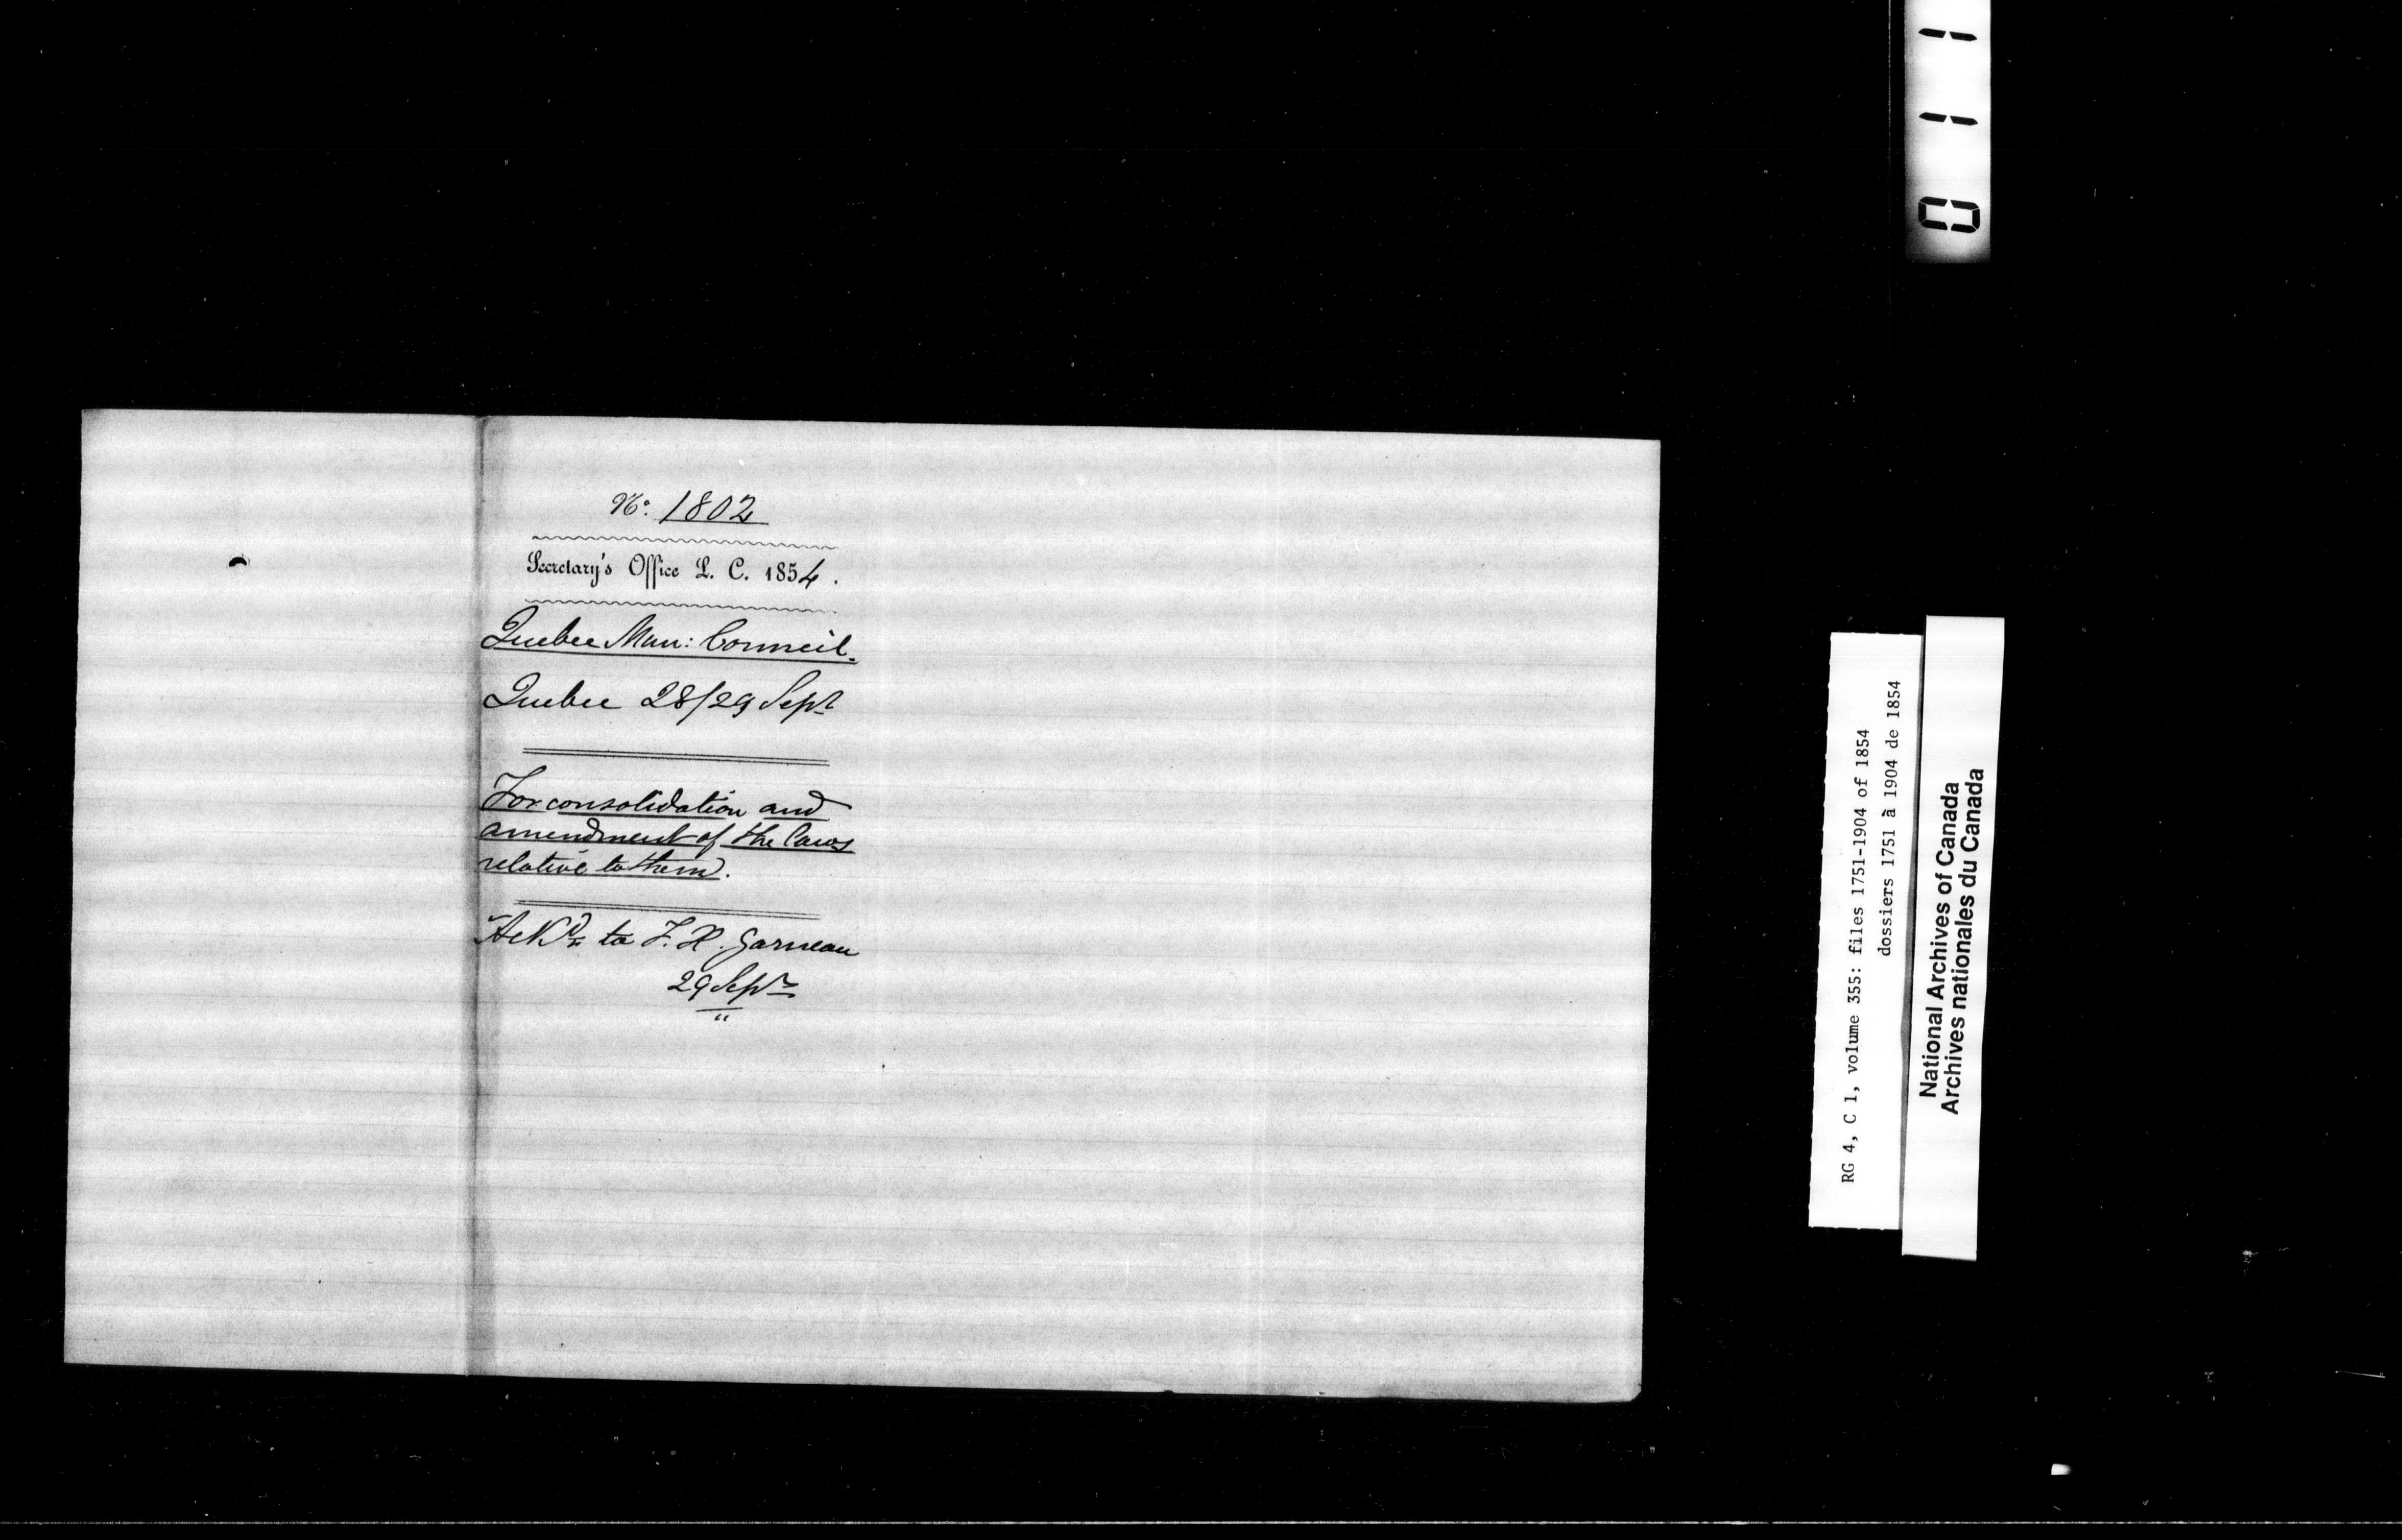 No. 1802
Secretary's Office L. C. 1854.
Quebec Mun: Council.
Quebec 28/29 Sept
For consolidation and
amendment of the laws
relative to them.
Ackd. to F. X. Garneau
29 Sept
"
RG 4, C 1, volume 355: files 1751-1904 of 1854
dossiers 1751 à 1904 de 1854
National Archives of Canada
Archives nationales du Canada
0 1 1